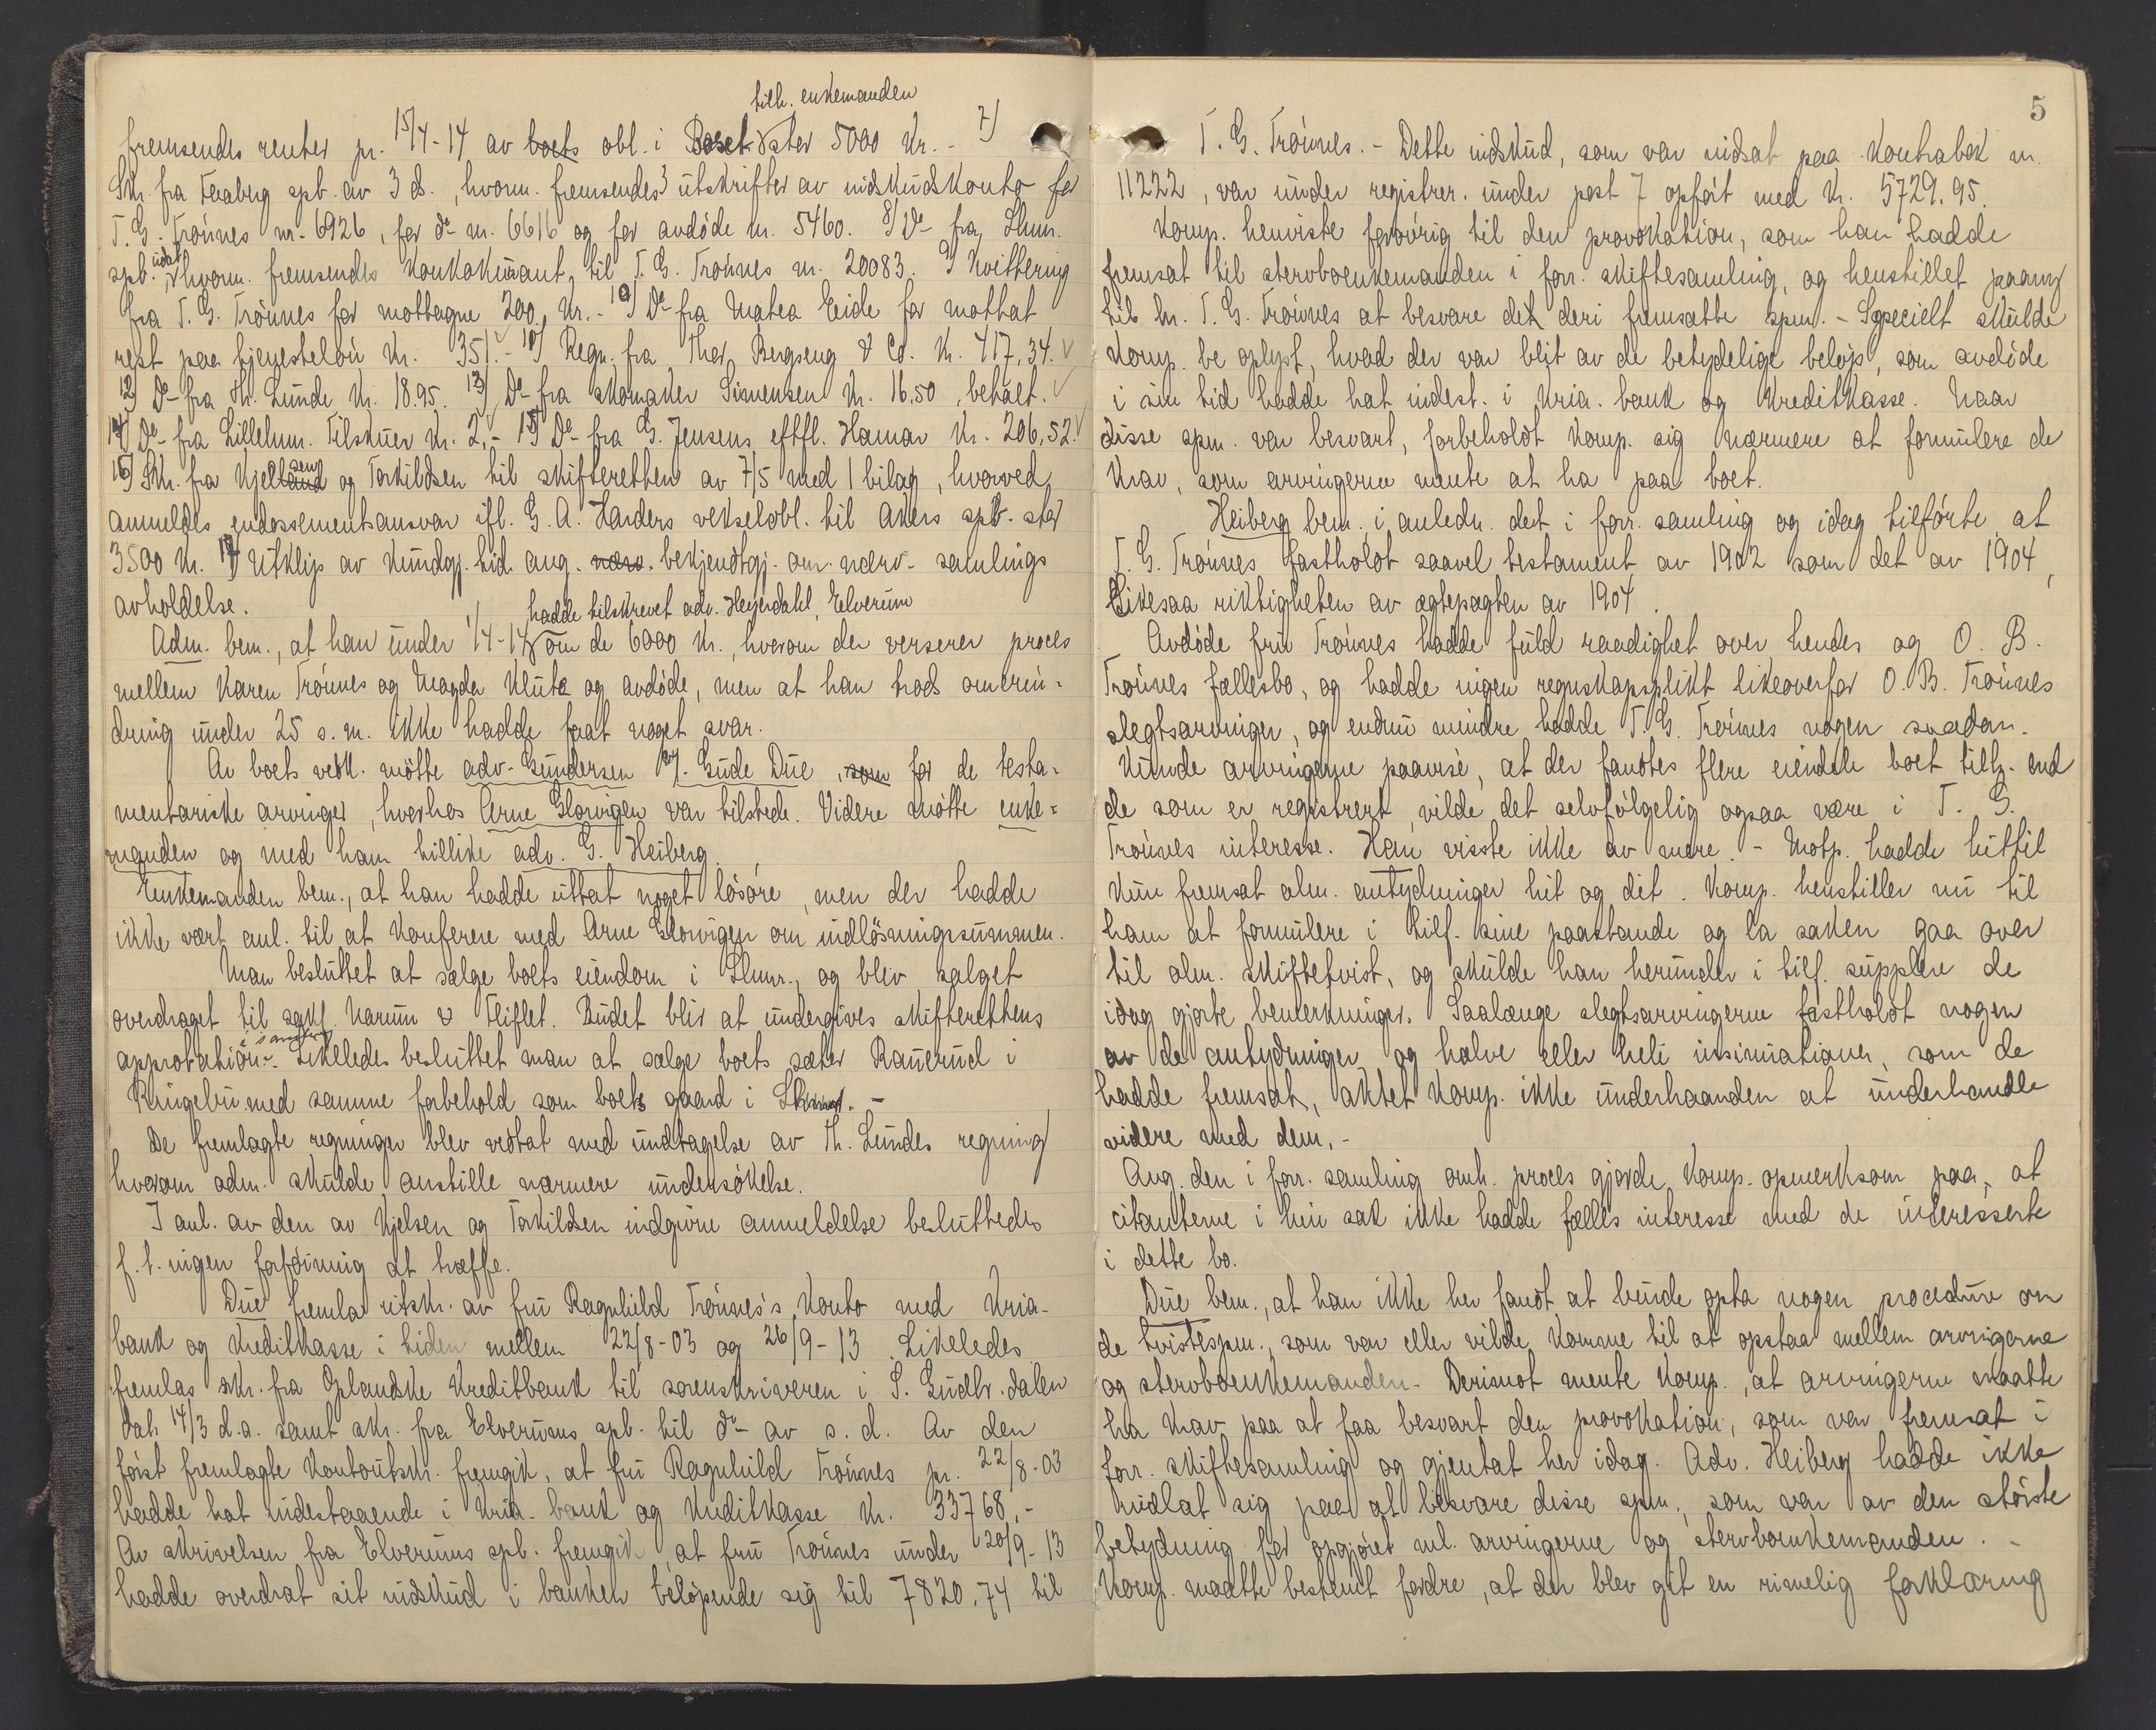 tilh. enkemanden
fremsendes renter pr. 15/4-14 av boets obl. i Boset ster 5000 Kr. - 7)
Skr. fra Faaberg spb. av 3 ds., hvorm. fremsendes 3 utskrifter av indskudskonto for
T. G. Trönnes nr. 6926, for do nr. 6616 og for avdöde nr. 5460. 8) Do fra Lhmr.
spb. hvorm. fremsendes Kontokurant til T. G. Trönnes nr. 20083. 9) Kvittering
fra T. G. Trönnes for mottagne 200 Kr. - 10) Do fra Mathea Eide for mottat
rest paa tjenestelön Kr. 351. - 11) Regn. fra Thor Bergseng & Co. Kr. 417,34. V
12) Do fra Th. Lunde Kr. 18.95. 13) Do fra skomaker Simensen Kr. 16,50, betalt. V
14) Do fra Lillehm. Tilskuer Kr. 2,- 15) Do fra G. Jensens eftfl. Hamar Kr. 206,52. V
sen
16) Skr. fra Kjelland og Torkildsen til skifteretten av 7/5 med 1 bilag, hvorved
anmeldes endossementsansvar ifl. G. A. Harders vekselobl. til Akers spb. stor
3500 Kr. 17) Utklip av Kundgj. tid. ang. nærv. bekjendtgj. om nærv. samlings
avholdelse.
hadde tilskrevet adv. Heyerdahl, Elverum
Adm. bem., at han under 1/4-14 om de 6000 Kr., hvorom der verserer proces
mellem Karen Trönnes og Magda Klute og avdöde, men at han trods omerin-
dring under 25 s. m. ikke hadde faat noget svar.
Av boets vedk. mötte adv. Gundersen v/ J. Gude Due, som for de testa-
mentariske arvinger, hvorhos Arne Glorvigen var tilstede. Videre mötte enke-
manden og med ham tillike adv. G. Heiberg.
Enkemanden bem., at han hadde uttat noget lösöre, men der hadde
ikke vært anl. til at konferere med Arne Glorvigen om indlösningssummen.
Man besluttet at sælge boets eiendom i Lhmr., og blev salget
overdraget til sakf. Narum & Fliflet. Budet blir at undergives skifterettens
approbation. - Likeledes besluttet man at sælge boets sæter Rauerud i
Ringebu med samme forbehold som boets gaard i Lhmr. -
De fremlagte regninger blev vedtat med undtagelse av Th. Lundes regning
hvorom adm. skulde anstille nærmere undersökelse.
I anl. av den av Kjelsen og Torkildsen indgivne anmeldelse besluttedes
f. t. ingen forföining at træffe.
Due fremla utskr. av fru Ragnhild Trönnes's Konto med Kria.
bank og Kreditkasse i tiden mellem 22/8-03 og 26/9-13. Likeledes
fremlas skr. fra Oplandske Kreditbank til sorenskriveren i S. Gudbr.dalen
dat. 14/3 d.a. samt skr. fra Elverums spb. til do av s. d. Av den
först fremlagte Kontoutskr. fremgik, at fru Ragnhild Trönnes pr. 22/8-03
hadde hat indestaaende i Kria. bank og Kreditkasse Kr. 33768,-
Av skrivelsen fra Elverums spb. fremgik, at fru Trönnes under 20/9-13
hadde overdrat sit indskud i banken belöpende sig til 7820.74 til
5
T. G. Trönnes. - Dette indskud, som var indsat paa Kontrabok nr.
11222, var under registrer. under post 7 opfört med Kr. 5729.95.
Komp. henviste forövrig til den provokation, som han hadde
fremsat til stervboenkemanden i forr. skiftesamling, og henstillet paany
til hr. T. G. Trönnes at besvare det deri fremsatte spm. - Specielt skulde
Komp. be oplyst, hvad der var blit av de betydelige belöp, som avdöde
i sin tid hadde hat indest. i Kria. bank og Kreditkasse. Naar
disse spm. var besvart, forbeholdt Komp. sig nærmere at formulere de
Krav, som arvingerne mente at ha paa boet.
Heiberg bem. i anledn. det i forr. samling og idag tilförte, at
T. G. Trönnes fastholdt saavel testament av 1902 som det av 1904,
likesaa riktigheten av ægtepagten av 1904.
Avdöde fru Trönnes hadde fuld raadighet over hendes og O. B.
Trönnes fællesbo, og hadde ingen regnskapsplikt likeoverfor O. B. Trönnes
slegtsarvinger, og endnu mindre hadde T. G. Trönnes nogen saadan.
Kunde arvingerne paavise, at der fandtes flere eiendele boet tilh. end
de som er registrert, vilde det selvfölgelig ogsaa være i T. G.
Trönnes interesse. Han visste ikke av mere. - Motp. hadde hittil
kun fremsat alm. antydninger hit og dit. Komp. henstiller nu til
ham at formulere i tilf. sine paastande og la saken gaa over
til alm. skiftetvist, og skulde han herunder i tilf. supplere de
idag gjorte bemerkninger. Saalænge slegtsarvingerne fastholdt nogen
av de antydninger og halve eller hele insinuationer, som de
hadde fremsat, aktet Komp. ikke underhaanden at underhandle
videre med dem. -
Ang. den i forr. samling omh. proces gjorde Komp. opmerksom paa, at
citanterne i hin sak ikke hadde fælles interesse med de interesserte
i dette bo.
Due bem., at han ikke her fandt at burde opta nogen procedure om
de tvistespm., som var eller vilde komme til at opstaa mellem arvingerne
og stervboenkemanden. Derimot mente Komp., at arvingerne maatte
ha krav paa at faa besvart den provokation, som var fremsat i
forr. skiftesamling og gjentat her idag. Adv. Heiberg hadde ikke
indlat sig paa at besvare disse spm., som var av den störste
betydning for opgjöret ml. arvingerne og stervboenkemanden. -
Komp. maatte bestemt fordre, at der blev git en rimelig forklaring